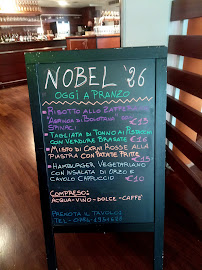 NOBEL '26
OGGI A PRANZO
RISOTTO ALLO ZAFFERANO
SPINACI €13
TAGLIATA DI TONNO AI PISTACCHI
CON VERDURE BRASATE €16
MISTO DI CARNI ROSSE ALLA
PIASTRA CON PATATE FRITTE €15
HAMBURGER VEGETARIANO
CON INSALATA DI ORZO E
CAVOLO CAPPUCCIO €10
COMPRESO:
ACQUA-VINO-DOLCE-CAFFE'
PRENOTA IL TAVOLO:
TEL.